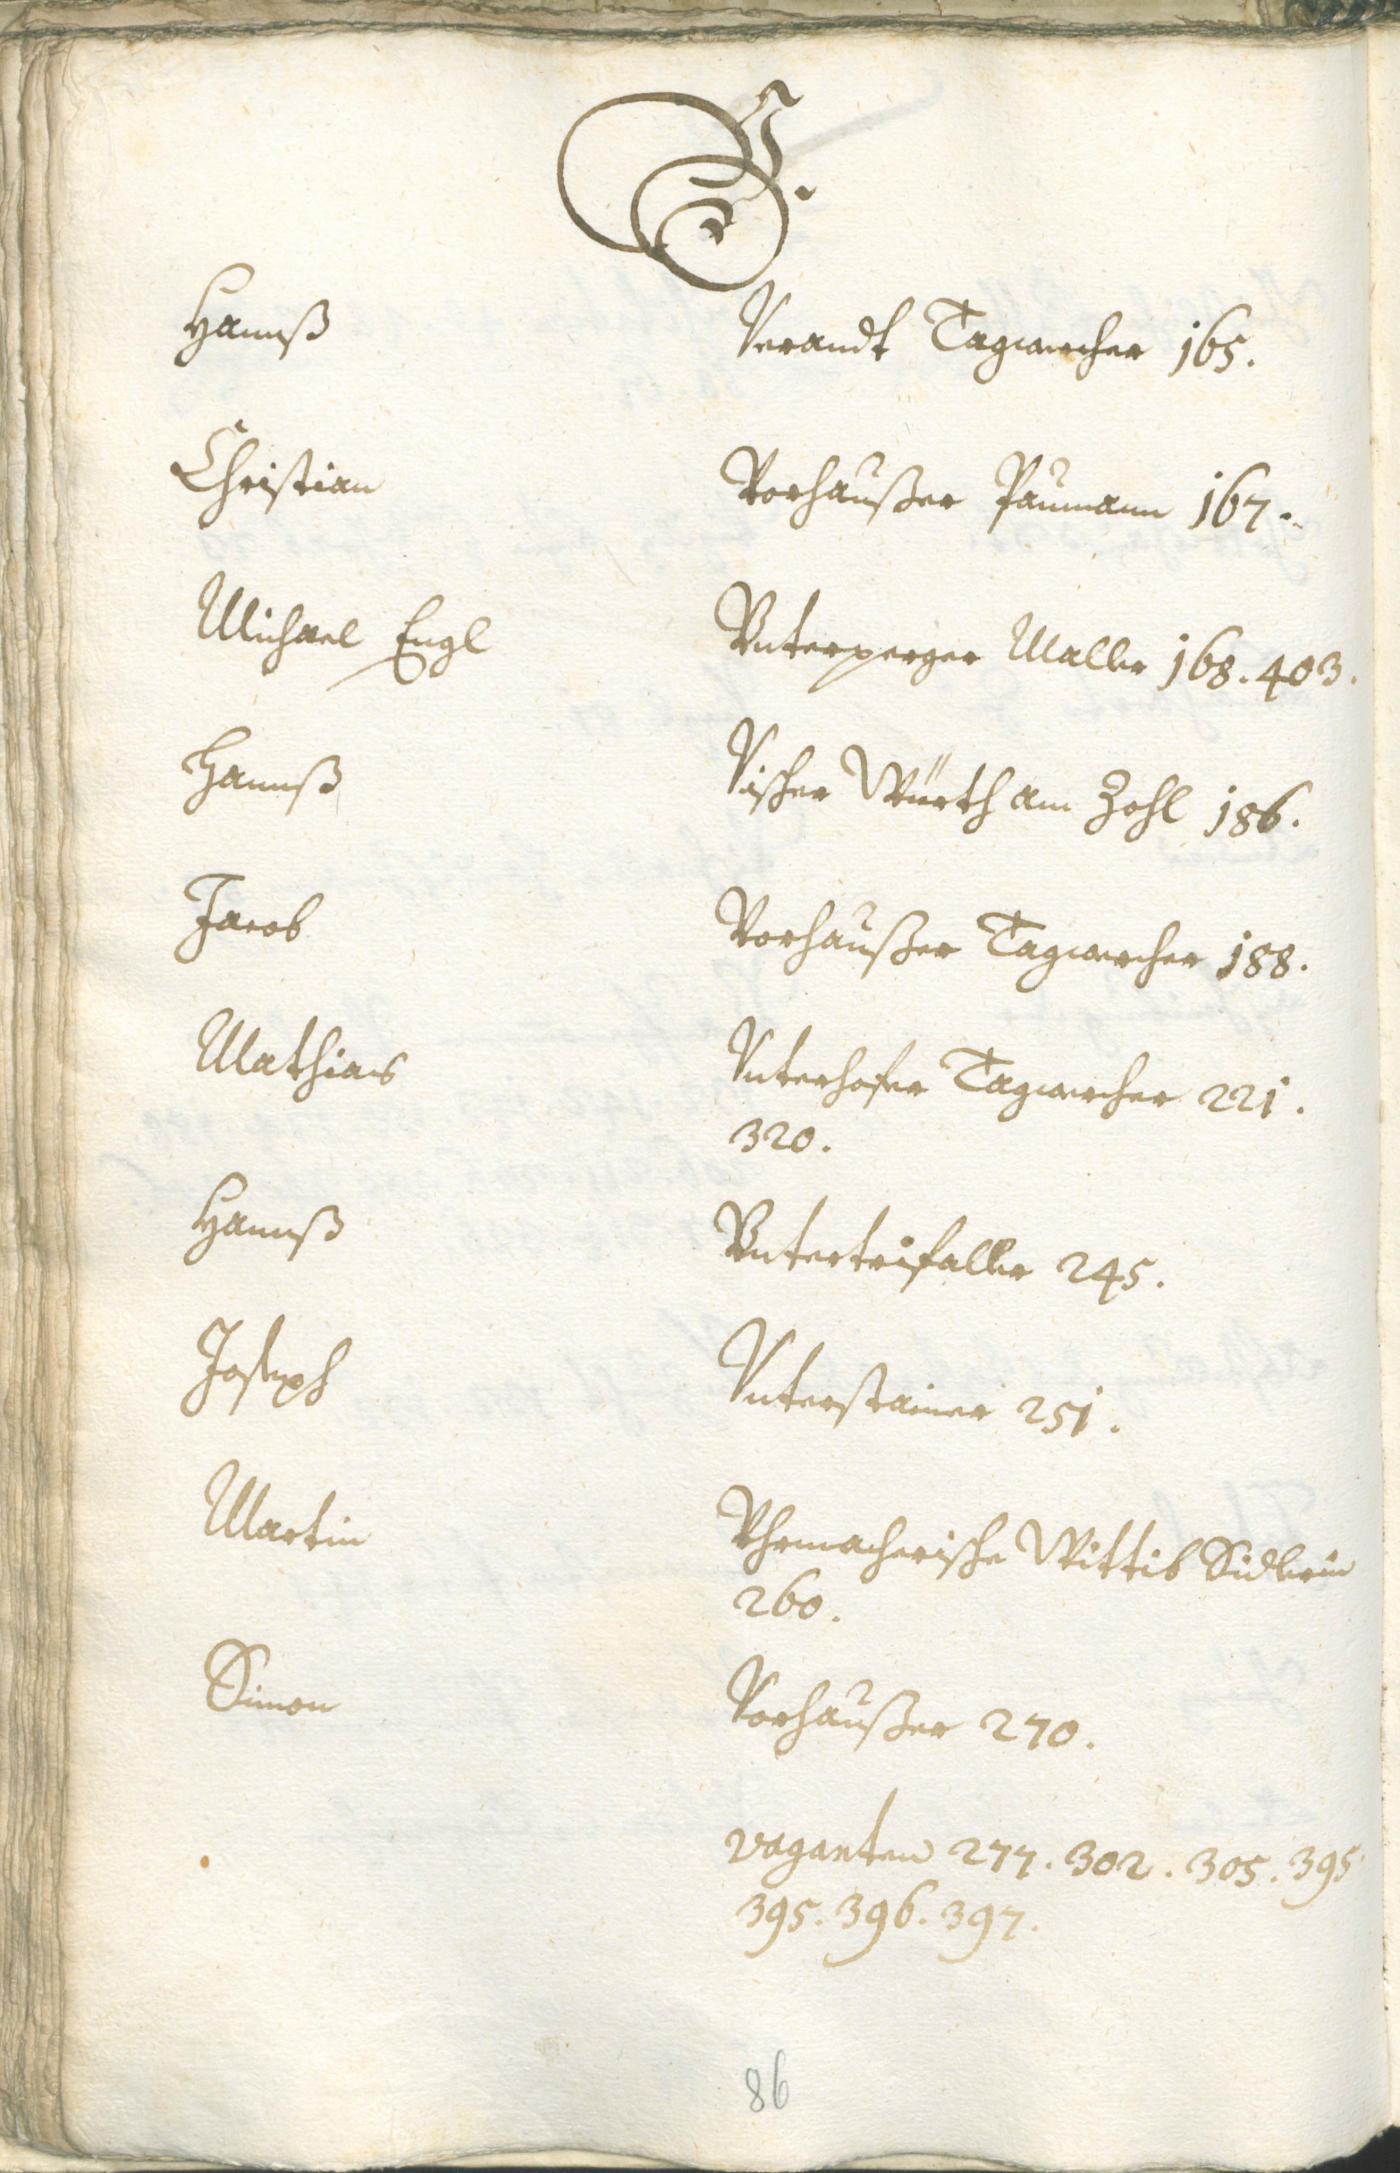 V.
Hannß Verandt Tagwercher 165.
Christian Vorhaußer Paumann 167.
Michael Engl Vnterperger Maller 168. 403.
Hannß Vischer Würth am Zohl 186.
Jacob Vorhaußer Tagwercher 188.
Mathias Vnterhofer Tagwercher 221.
320.
Hannß Vntertrifaller 245.
Joseph Vnterstainer 251.
Martin Vhrmacherische Wittib Sidlerin
260.
Simon Vorhaußer 270.
vaganten 277. 302. 305. 395
395. 396. 397.
86